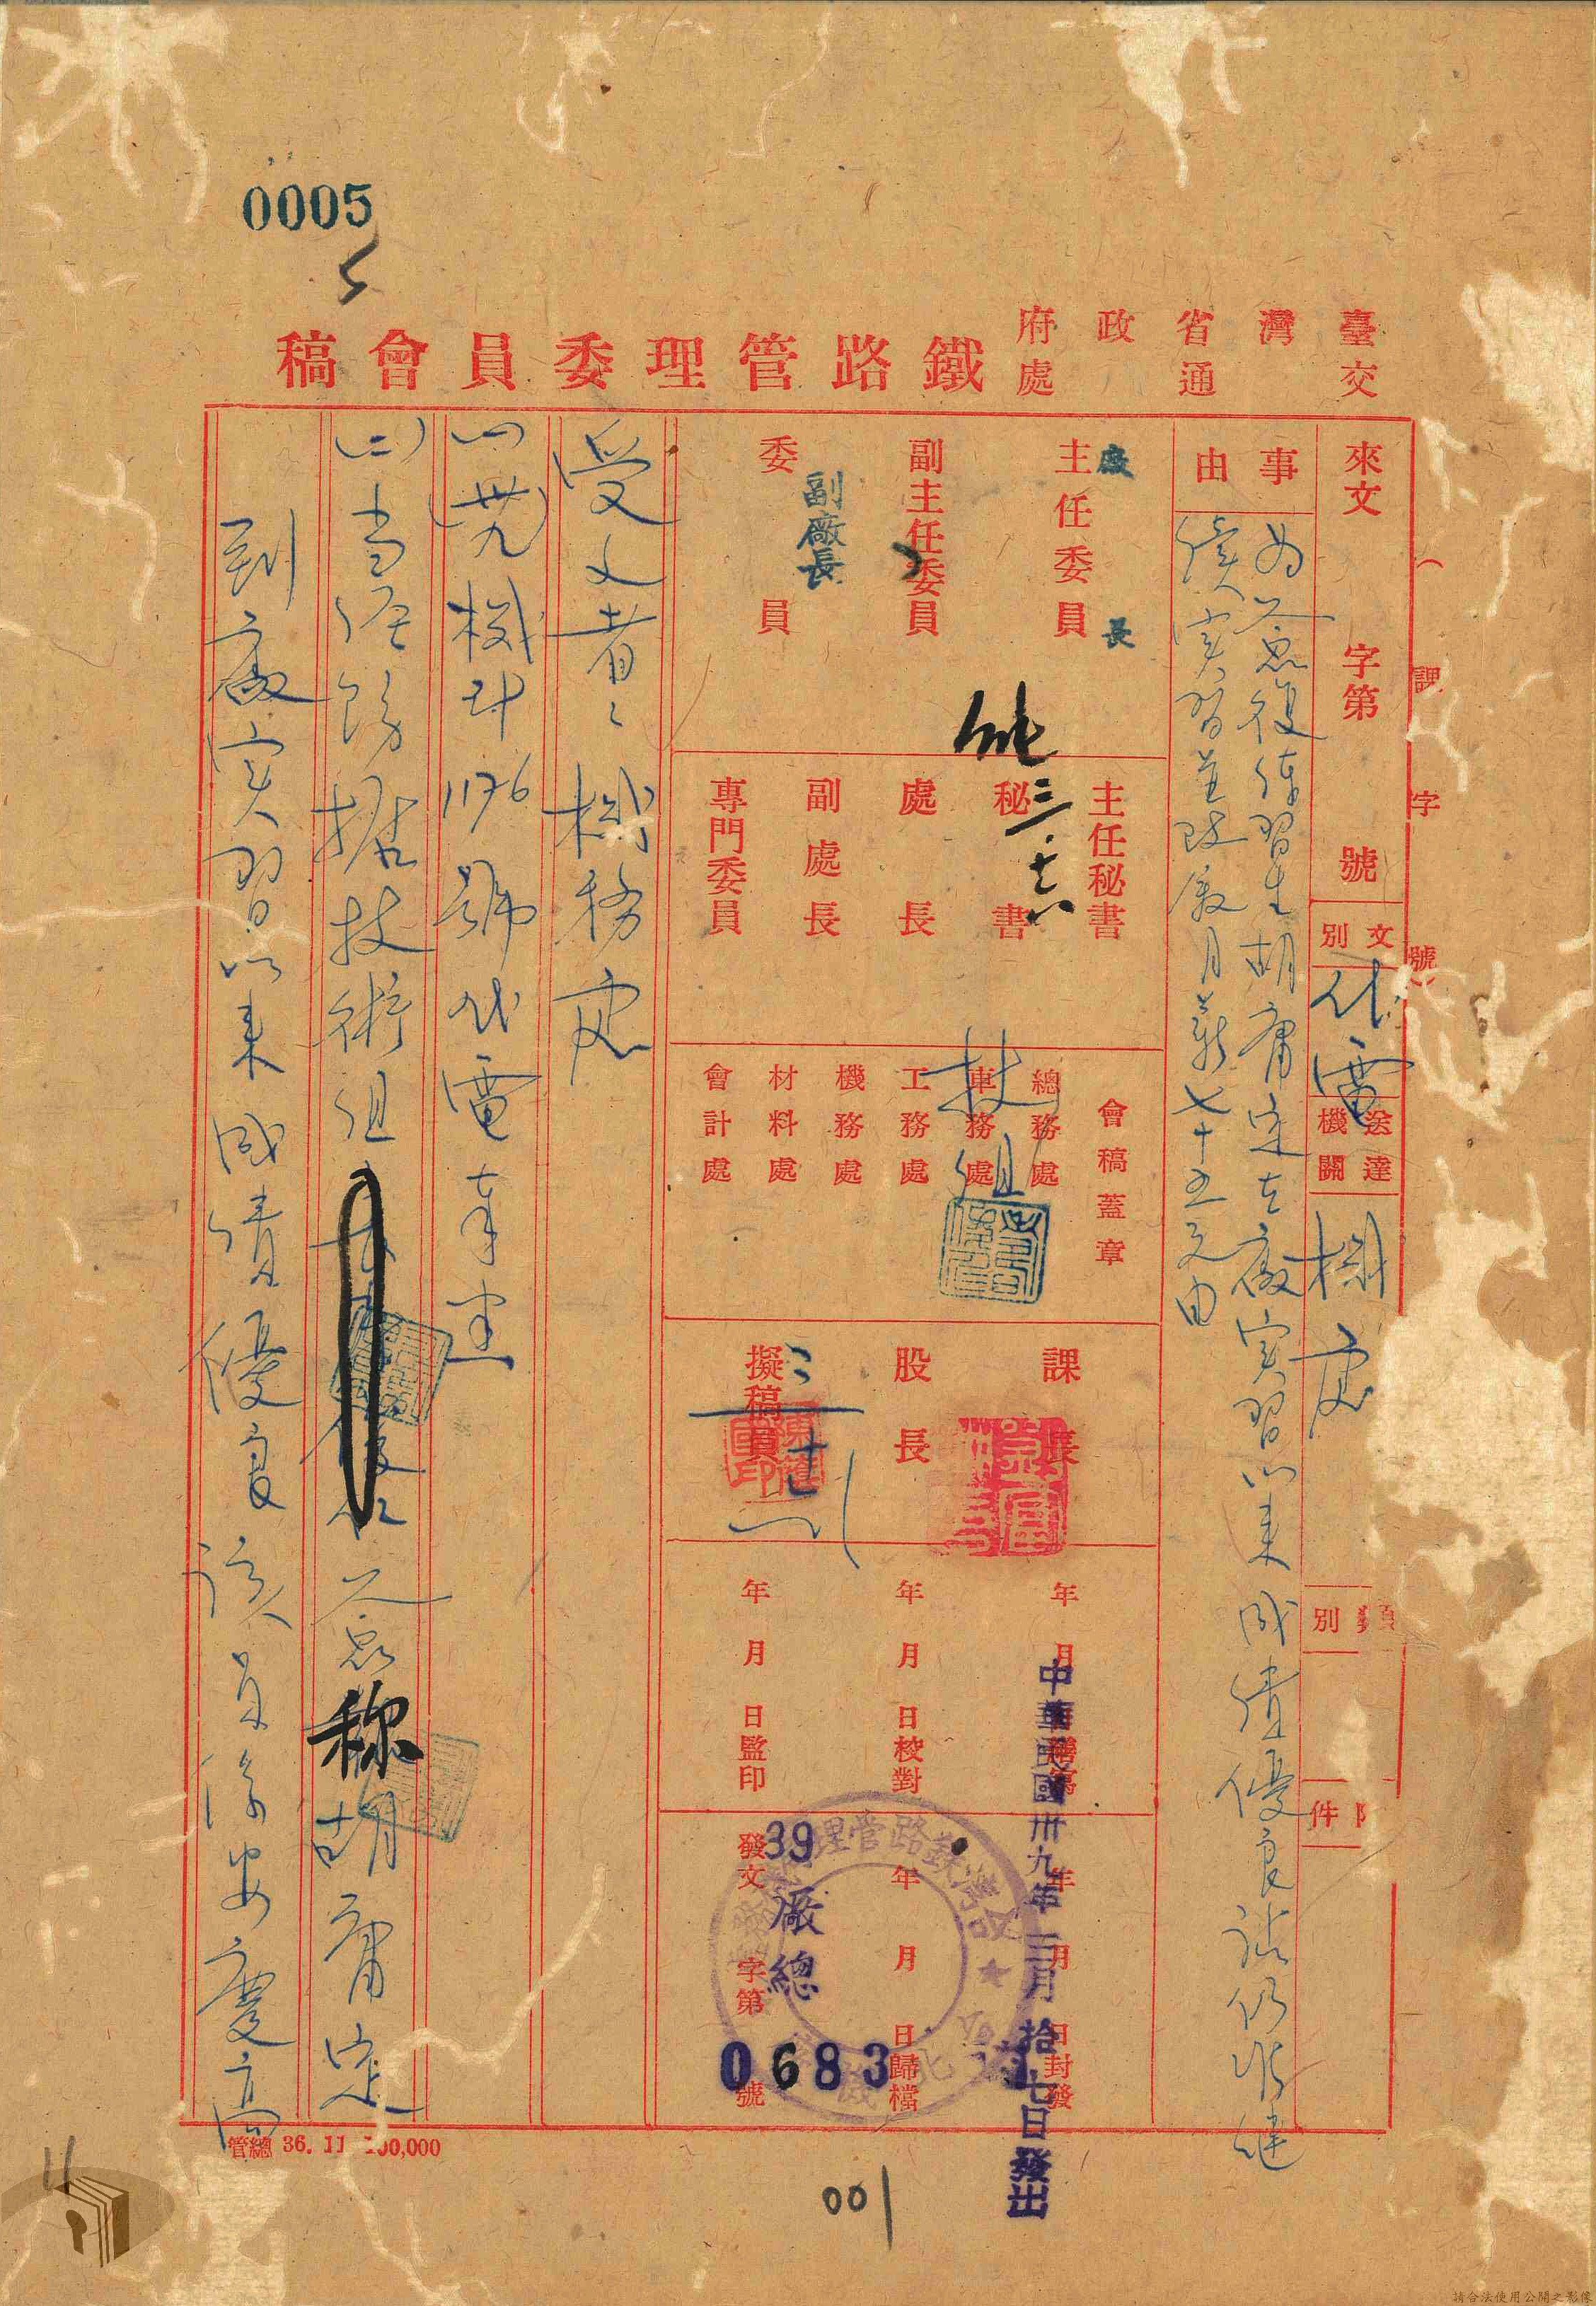 0005
臺灣省政府
交通處
鐵路管理委員會稿
（　課　字　號）
來文　字第　號
文別
代電
送達機關
機務處
類別
附件
事由
為签復練習生胡甯定在廠实習以来成绩優良請仍准継
續实習並改敘月薪七十五元由
主任委員
廠長
副主任委員
委員
副廠長
三.十六
主任秘書
秘書
處長
副處長
專門委員
會稿蓋章
總務處
車務處
工務處
機務處
材料處
會計處
技術組
課長
股長
擬稿員
年　月　日繕寫
年　月　日校對
年　月　日監印
年　月　日封發
年　月　日歸檔
發文　字第　號
中華民國卅九年三月拾七日發出
39
廠總
0683
受文者：機務處
(一)(卅九)機計1176號代電奉悉
(二)當經飭据技術組签称胡甯定
到廠实習以来成绩優良該員係安慶高
管總 36. 11 100,000
001
11
請合法使用公開之影像